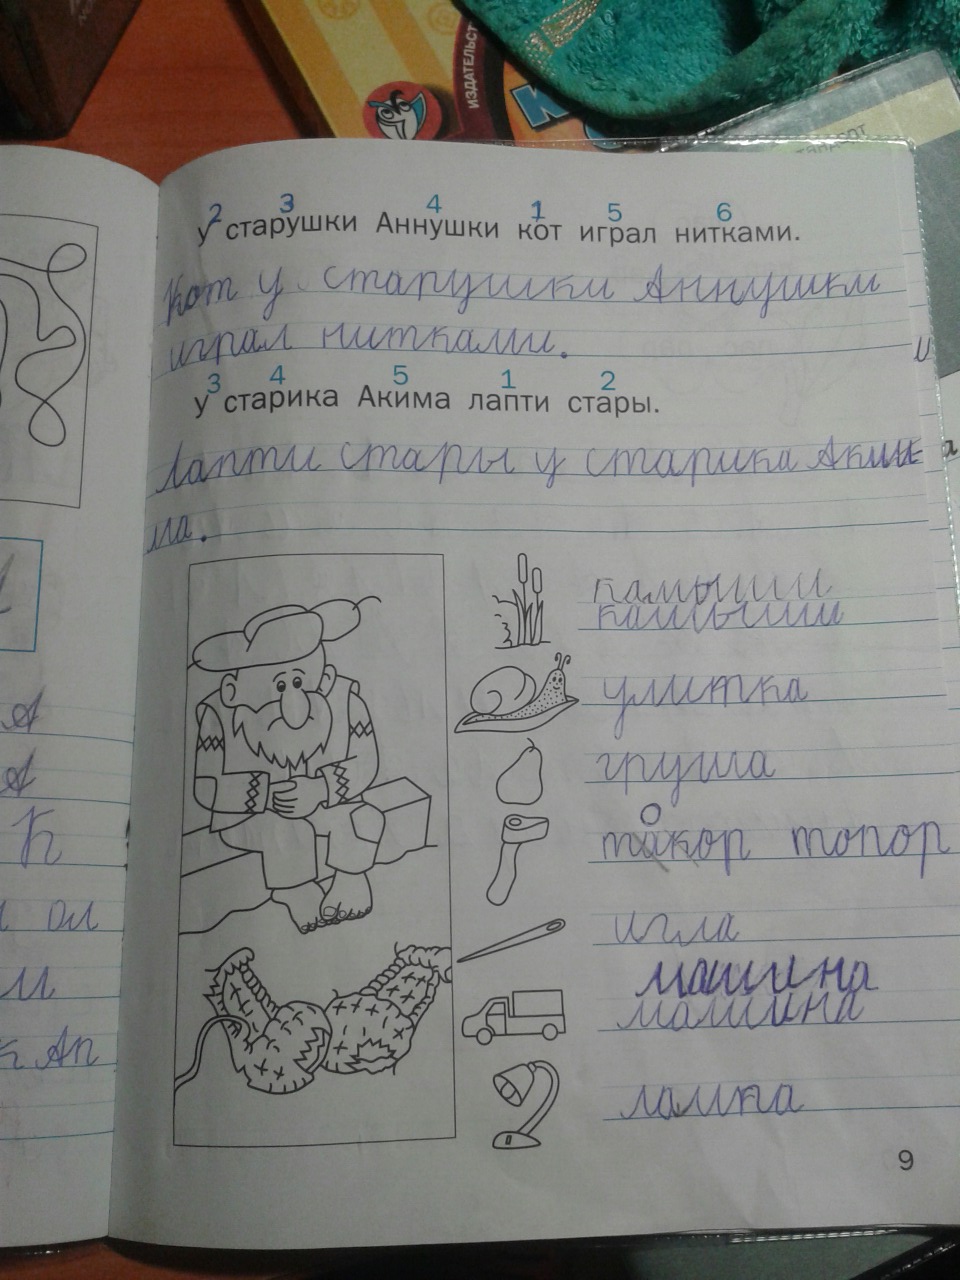 ИЗДАТЕЛЬСТ
2 3 4 1 5 6
У старушки Аннушки кот играл нитками.
Кот у старушки Аннушки
играл нитками.
3 4 5 1 2
У старика Акима лапти стары.
Лапти стары у старика Аки
ма.
камыши
камыши
улитка
груша
о
такор топор
игла
машина
машина
лампа
9
А
А
К
ол
и
к Ап